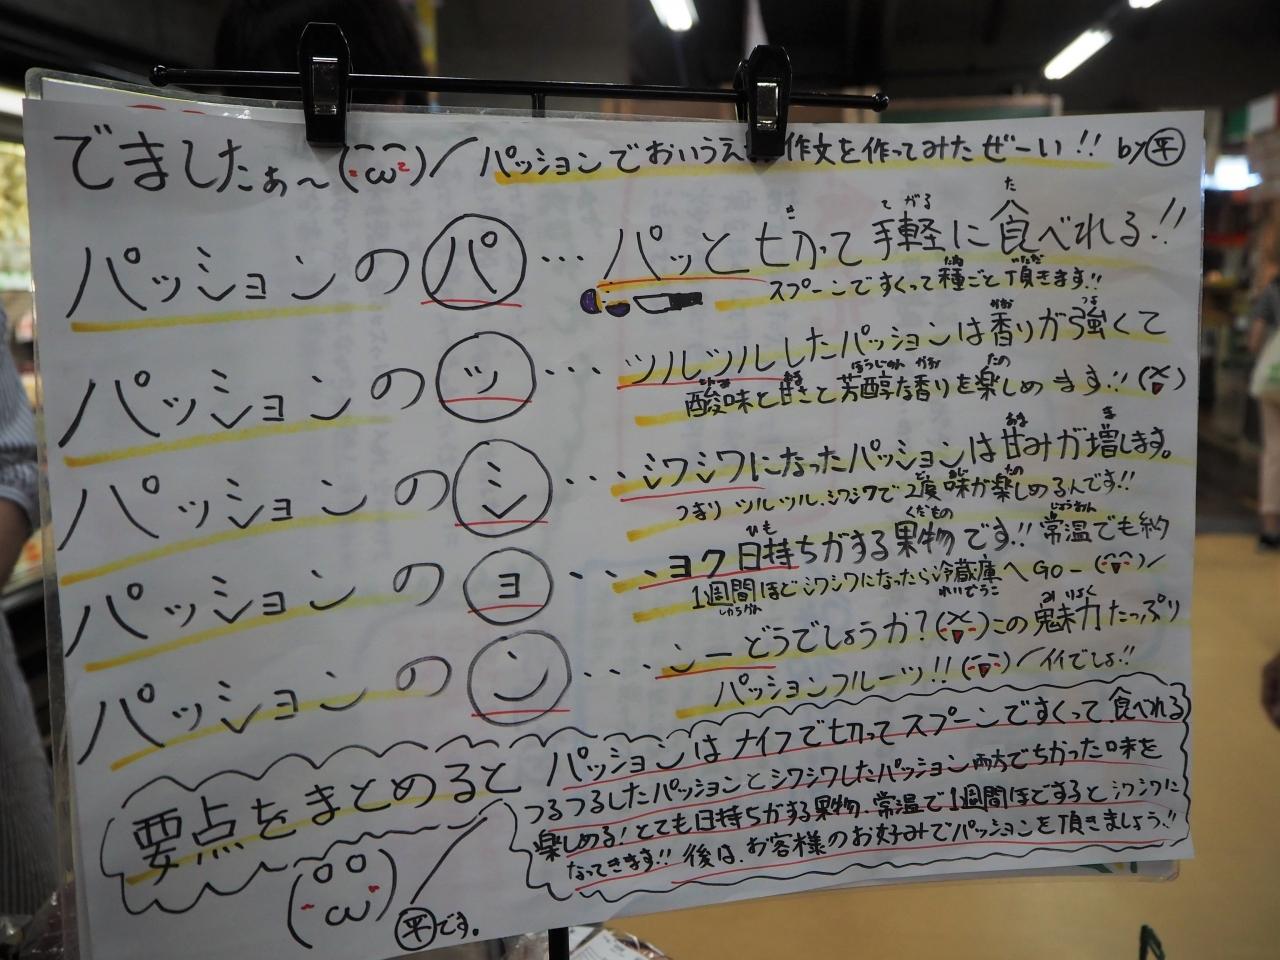 でましたぁ〜(･ω･)／ パッションでおいうえ 作文を作ってみたぜーい!! by 平
パッションの パ … パッと切って手軽に食べれる!!
スプーンですくって種ごと頂きます!!
パッションの ッ … ツルツルしたパッションは香りが強くて
酸味と甘さと芳醇な香りを楽しめます!!
パッションの シ … シワシワになったパッションは甘みが増します。
つまり ツルツル、シワシワで2度味が楽しめるんです!!
パッションの ョ ‥‥ ヨク日持ちがする果物です!! 常温でも約
1週間ほどシワシワになったら冷蔵庫へGO-
パッションの ン ‥‥ んーどうでしょうか?この魅力たっぷり
パッションフルーツ!! ／イイでしょ!!
要点をまとめると
パッションはナイフで切ってスプーンですくって食べれる
つるつるしたパッションとシワシワしたパッション両方でちがった味を
楽しめる!とても日持ちがする果物、常温で1週間ほどするとシワシワに
なってきます!! 後は、お客様のお好みでパッションを頂きましょう!!
平です。